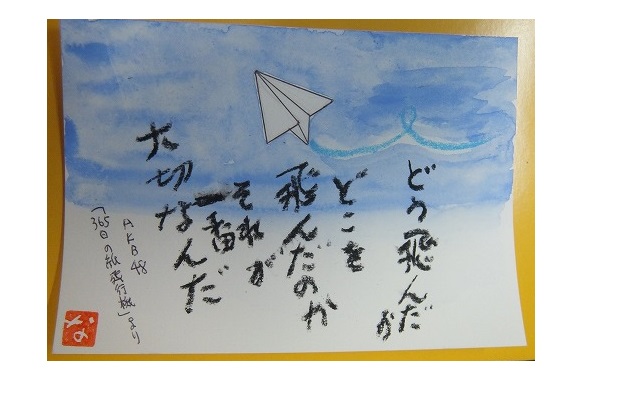 どう飛んだか
どこを
飛んだのか
それが
一番
大切なんだ
AKB48
「365日の紙飛行機」より